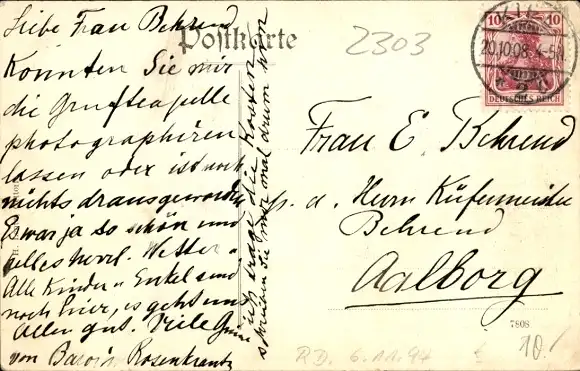 Liebe Frau Behrend
Konnten Sie mir
die Gruftcapelle
photographiren
lassen oder ist noch
nichts draus geworden
Es war ja so schön und
alles herrl. Wetter.
Alle Kinder u Enkel sind
noch hier, es geht uns
Allen gut. Viele Grüße
von Baronin Rosenkrantz
ich trage die Kosten
schreiben Sie mir mal drum
Postkarte
2303
10 10
20.10.08. 4-5N.
DEUTSCHES REICH
Frau E. Behrend
p. a. Herrn Küfermeister
Behrend
Aalborg
7808
10.
R.D. 6.11.94